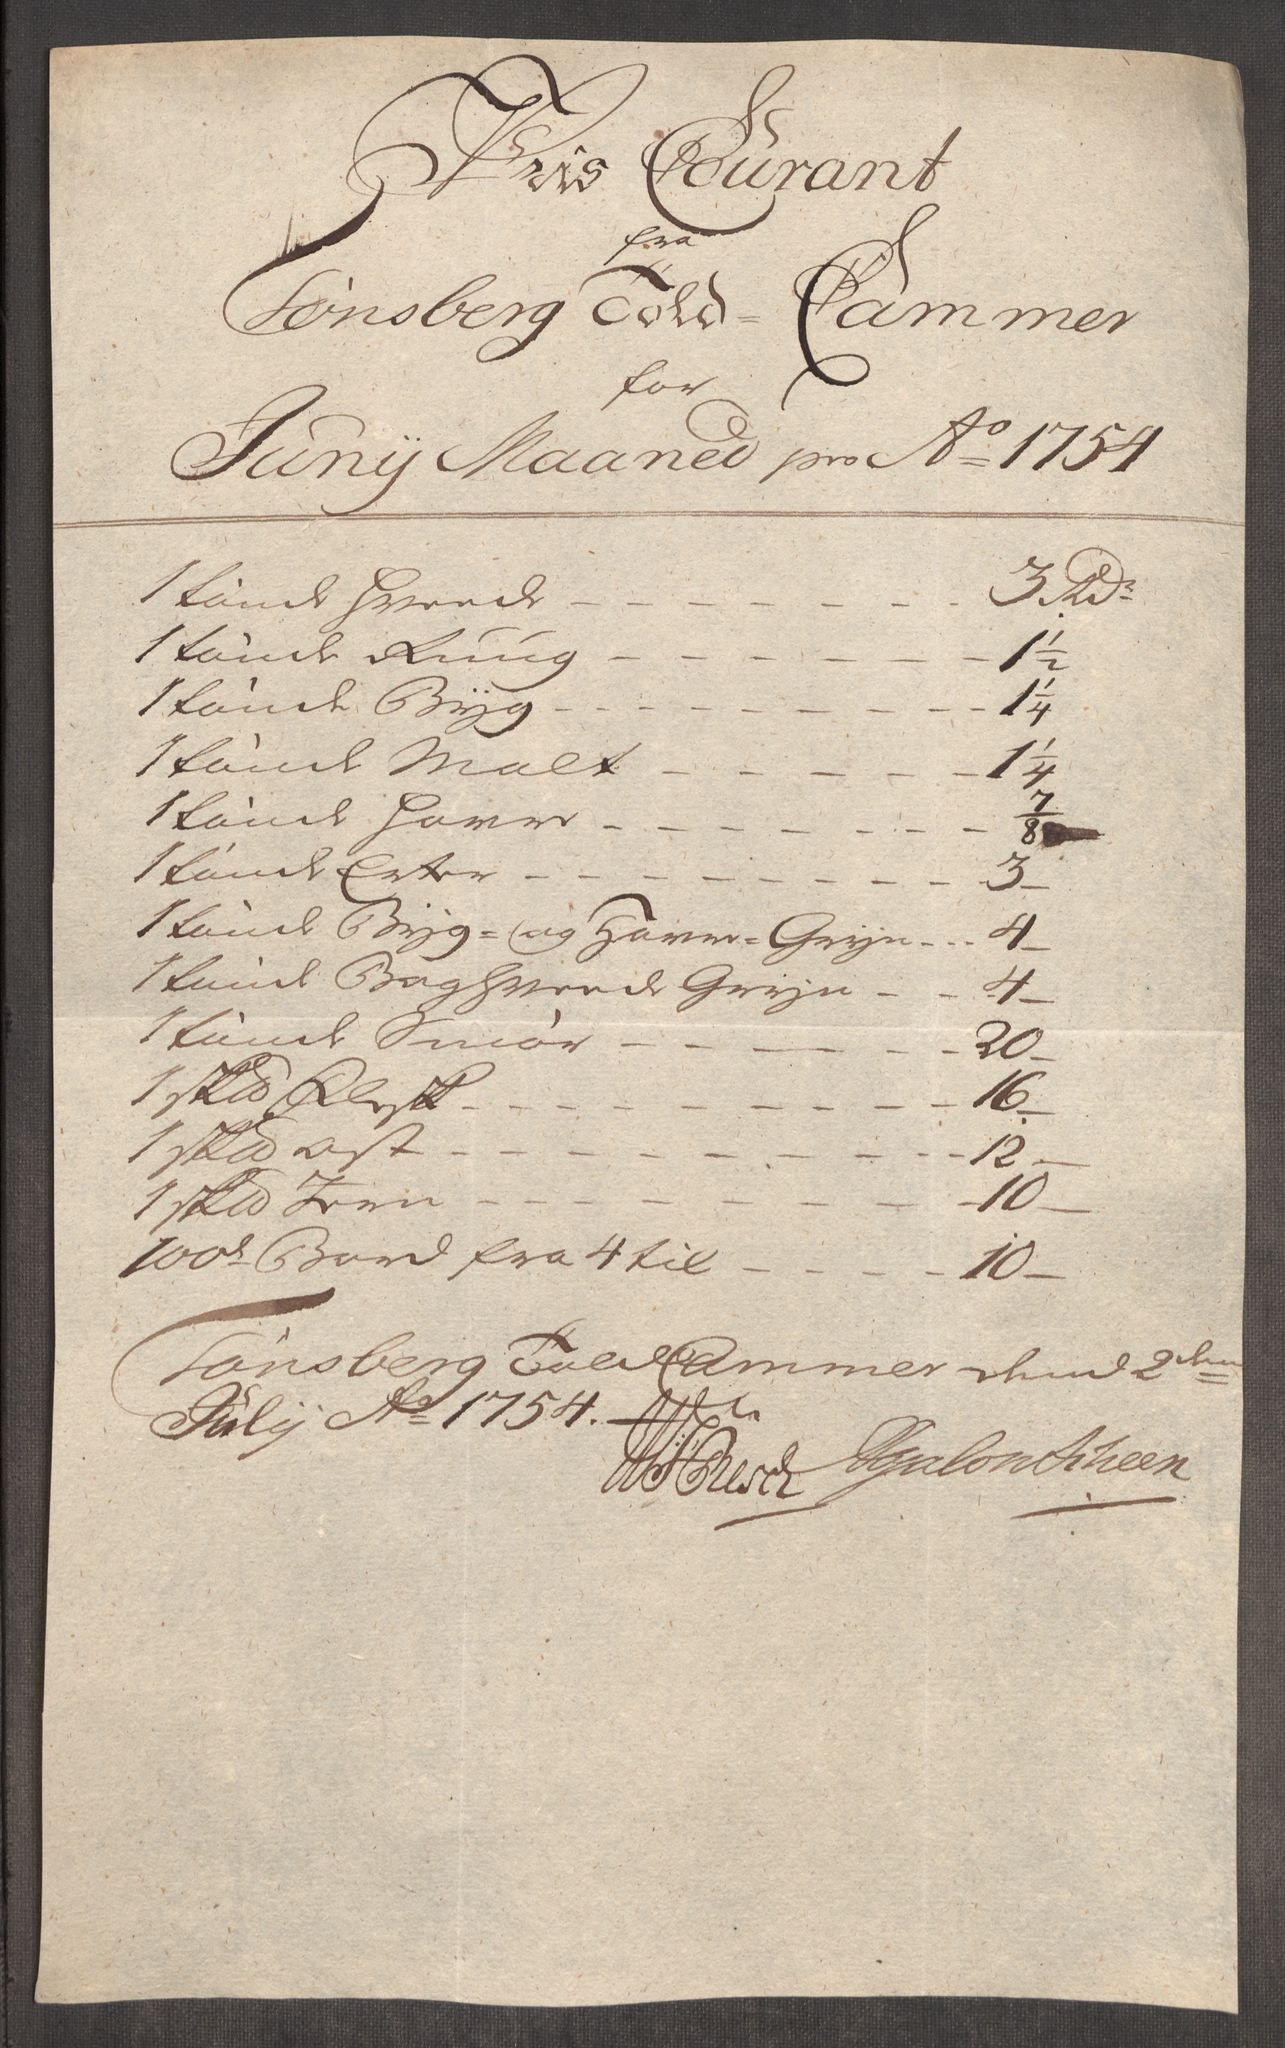 Pris Courant
fra
Tønsberg Told= Cammer
for
Junij Maaned pro Ao 1754
1 tønde Hveede - - - - - - - 3 Rdr
1 tønde Ruug - - - - - - - 1 1/2
1 tønde Bÿg - - - - - - - - 1 1/4
1 tønde Malt - - - - - - 1 1/4
1 tønde Havre - - - - - - - 7/8
1 tønde Erter - - - - - - - - - 3 -
1 tønde Bÿg= og Havre= Grÿn - - - 4 -
1 tønde Boghveede Grÿn - - - 4 -
1 tønde Smør - - - - - - 20 -
1 sk℔ Flesk - - - - - - - - - 16 -
1 sk℔ ost - - - - - - - - - - 12 -
1 sk℔ Jern - - - - - - - - - 10 -
100de Bord fra 4 til - - - - - 10 -
Tønsberg Told Cammer dend 2den
Julij Ao 1754.